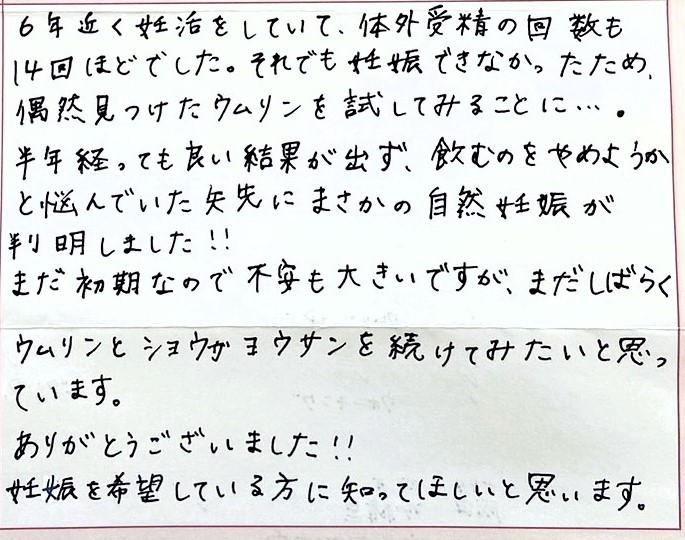 6年近く妊活をしていて、体外受精の回数も
14回ほどでした。それでも妊娠できなかったため、
偶然見つけたウムリンを試してみることに…。
半年経っても良い結果が出ず、飲むのをやめようか
と悩んでいた矢先にまさかの自然妊娠が
判明しました!!
まだ初期なので不安も大きいですが、まだしばらく
ウムリンとショウガヨウサンを続けてみたいと思っ
ています。
ありがとうございました!!
妊娠を希望している方に知ってほしいと思います。